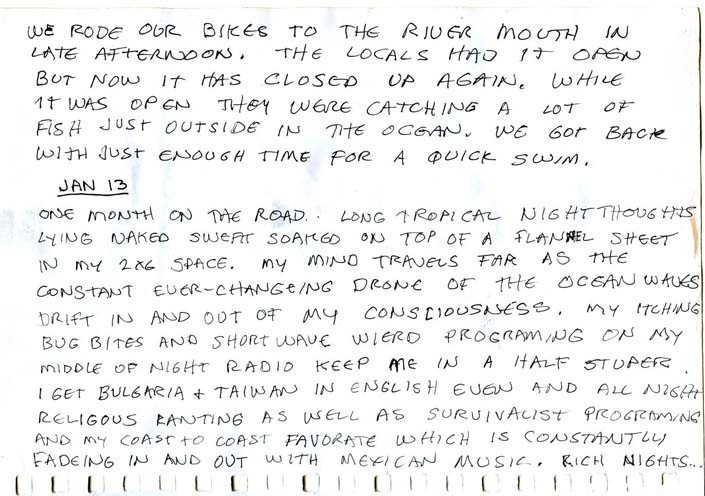 WE RODE OUR BIKES TO THE RIVER MOUTH IN
LATE AFTERNOON. THE LOCALS HAD IT OPEN
BUT NOW IT HAS CLOSED UP AGAIN. WHILE
IT WAS OPEN THEY WERE CATCHING A LOT OF
FISH JUST OUTSIDE IN THE OCEAN. WE GOT BACK
WITH JUST ENOUGH TIME FOR A QUICK SWIM.
JAN 13
ONE MONTH ON THE ROAD.. LONG TROPICAL NIGHT THOUGHTS
LYING NAKED SWEAT SOAKED ON TOP OF A FLANNEL SHEET
IN MY 2X6 SPACE. MY MIND TRAVELS FAR AS THE
CONSTANT EVER-CHANGEING DRONE OF THE OCEAN WAVES
DRIFT IN AND OUT OF MY CONSCIOUSNESS. MY ITCHING
BUG BITES AND SHORT WAVE WIERD PROGRAMING ON MY
MIDDLE OF NIGHT RADIO KEEP ME IN A HALF STUPER.
I GET BULGARIA + TAIWAN IN ENGLISH EVEN AND ALL NIGHT
RELIGOUS RANTING AS WELL AS SURVIVALIST PROGRAMING
AND MY COAST TO COAST FAVORATE WHICH IS CONSTANTLY
FADEING IN AND OUT WITH MEXICAN MUSIC. RICH NIGHTS...